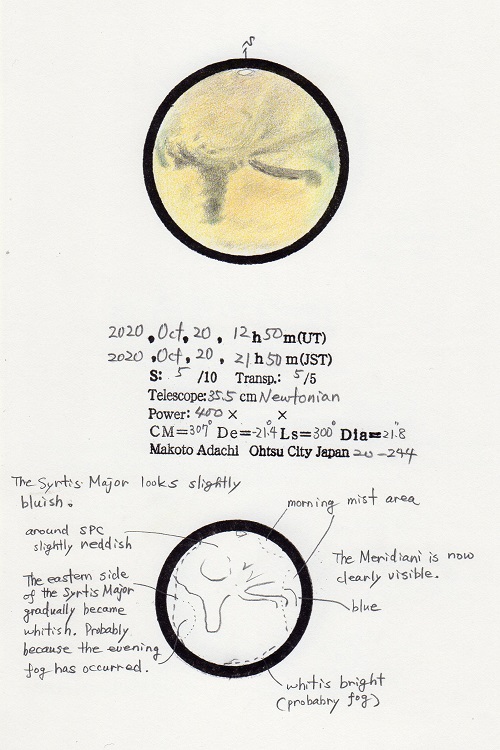 S
2020, Oct, 20, 12h50m(UT)
2020, Oct, 20, 21h50m(JST)
S: 5 /10 Transp.: 5/5
Telescope: 35.5 cm Newtonian
Power: 400 × ×
CM=307° De=-21.4° Ls=300° Dia=21.8"
Makoto Adachi Ohtsu City Japan 20-244
The Syrtis Major looks slightly
bluish.
morning mist area
around SPC
slightly reddish
The Meridiani is now
clearly visible.
The eastern side
of the Syrtis Major
gradually became
whitish. Probably
because the evening
fog has occurred.
blue
whitis bright
(probabry fog)